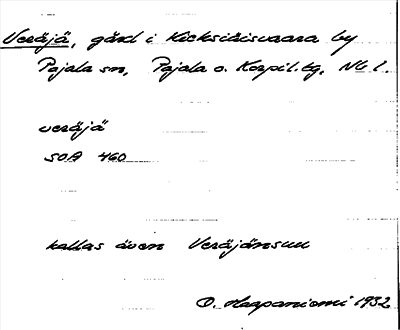 Veräjä, gård i Kieksiäisvaara by
Pajala sn, Pajala o. Korpil. tg, Nb l.
veräjä
SOA 460
kallas även Veräjänsuu
O. Haapaniemi 1932